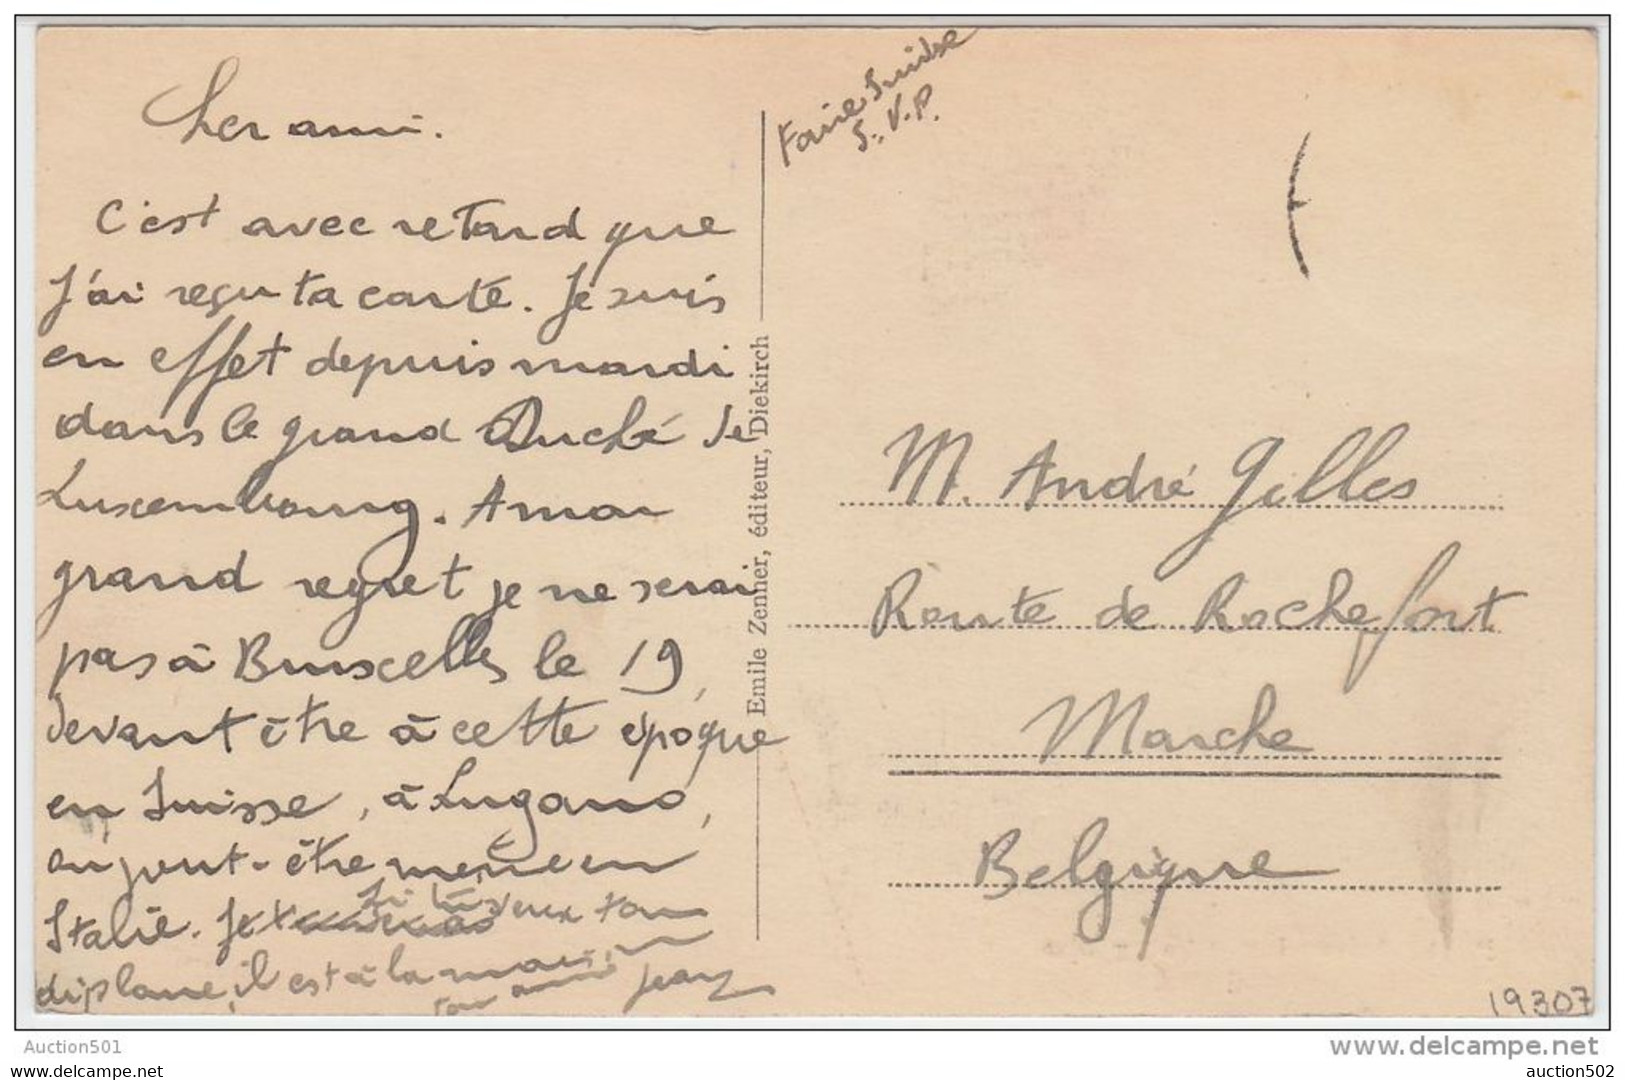 Cher ami.
C'est avec retard que
j'ai reçu ta carte. Je suis
en effet depuis mardi
dans le grand Duché de
Luxembourg. A mon
grand regret je ne serai
pas à Bruxelles le 19,
devant être à cette époque
en Suisse, à Lugano,
ou peut-être même en
Italie. Si tu veux ton
diplome, il est à la maison
ton ami Jean
Emile Zenner, éditeur, Diekirch
Faire Suivre
S. V. P.
M. André Gilles
Route de Rochefort
Marche
Belgique
19307
Auction501
www.delcampe.net
posterissimo
auction502